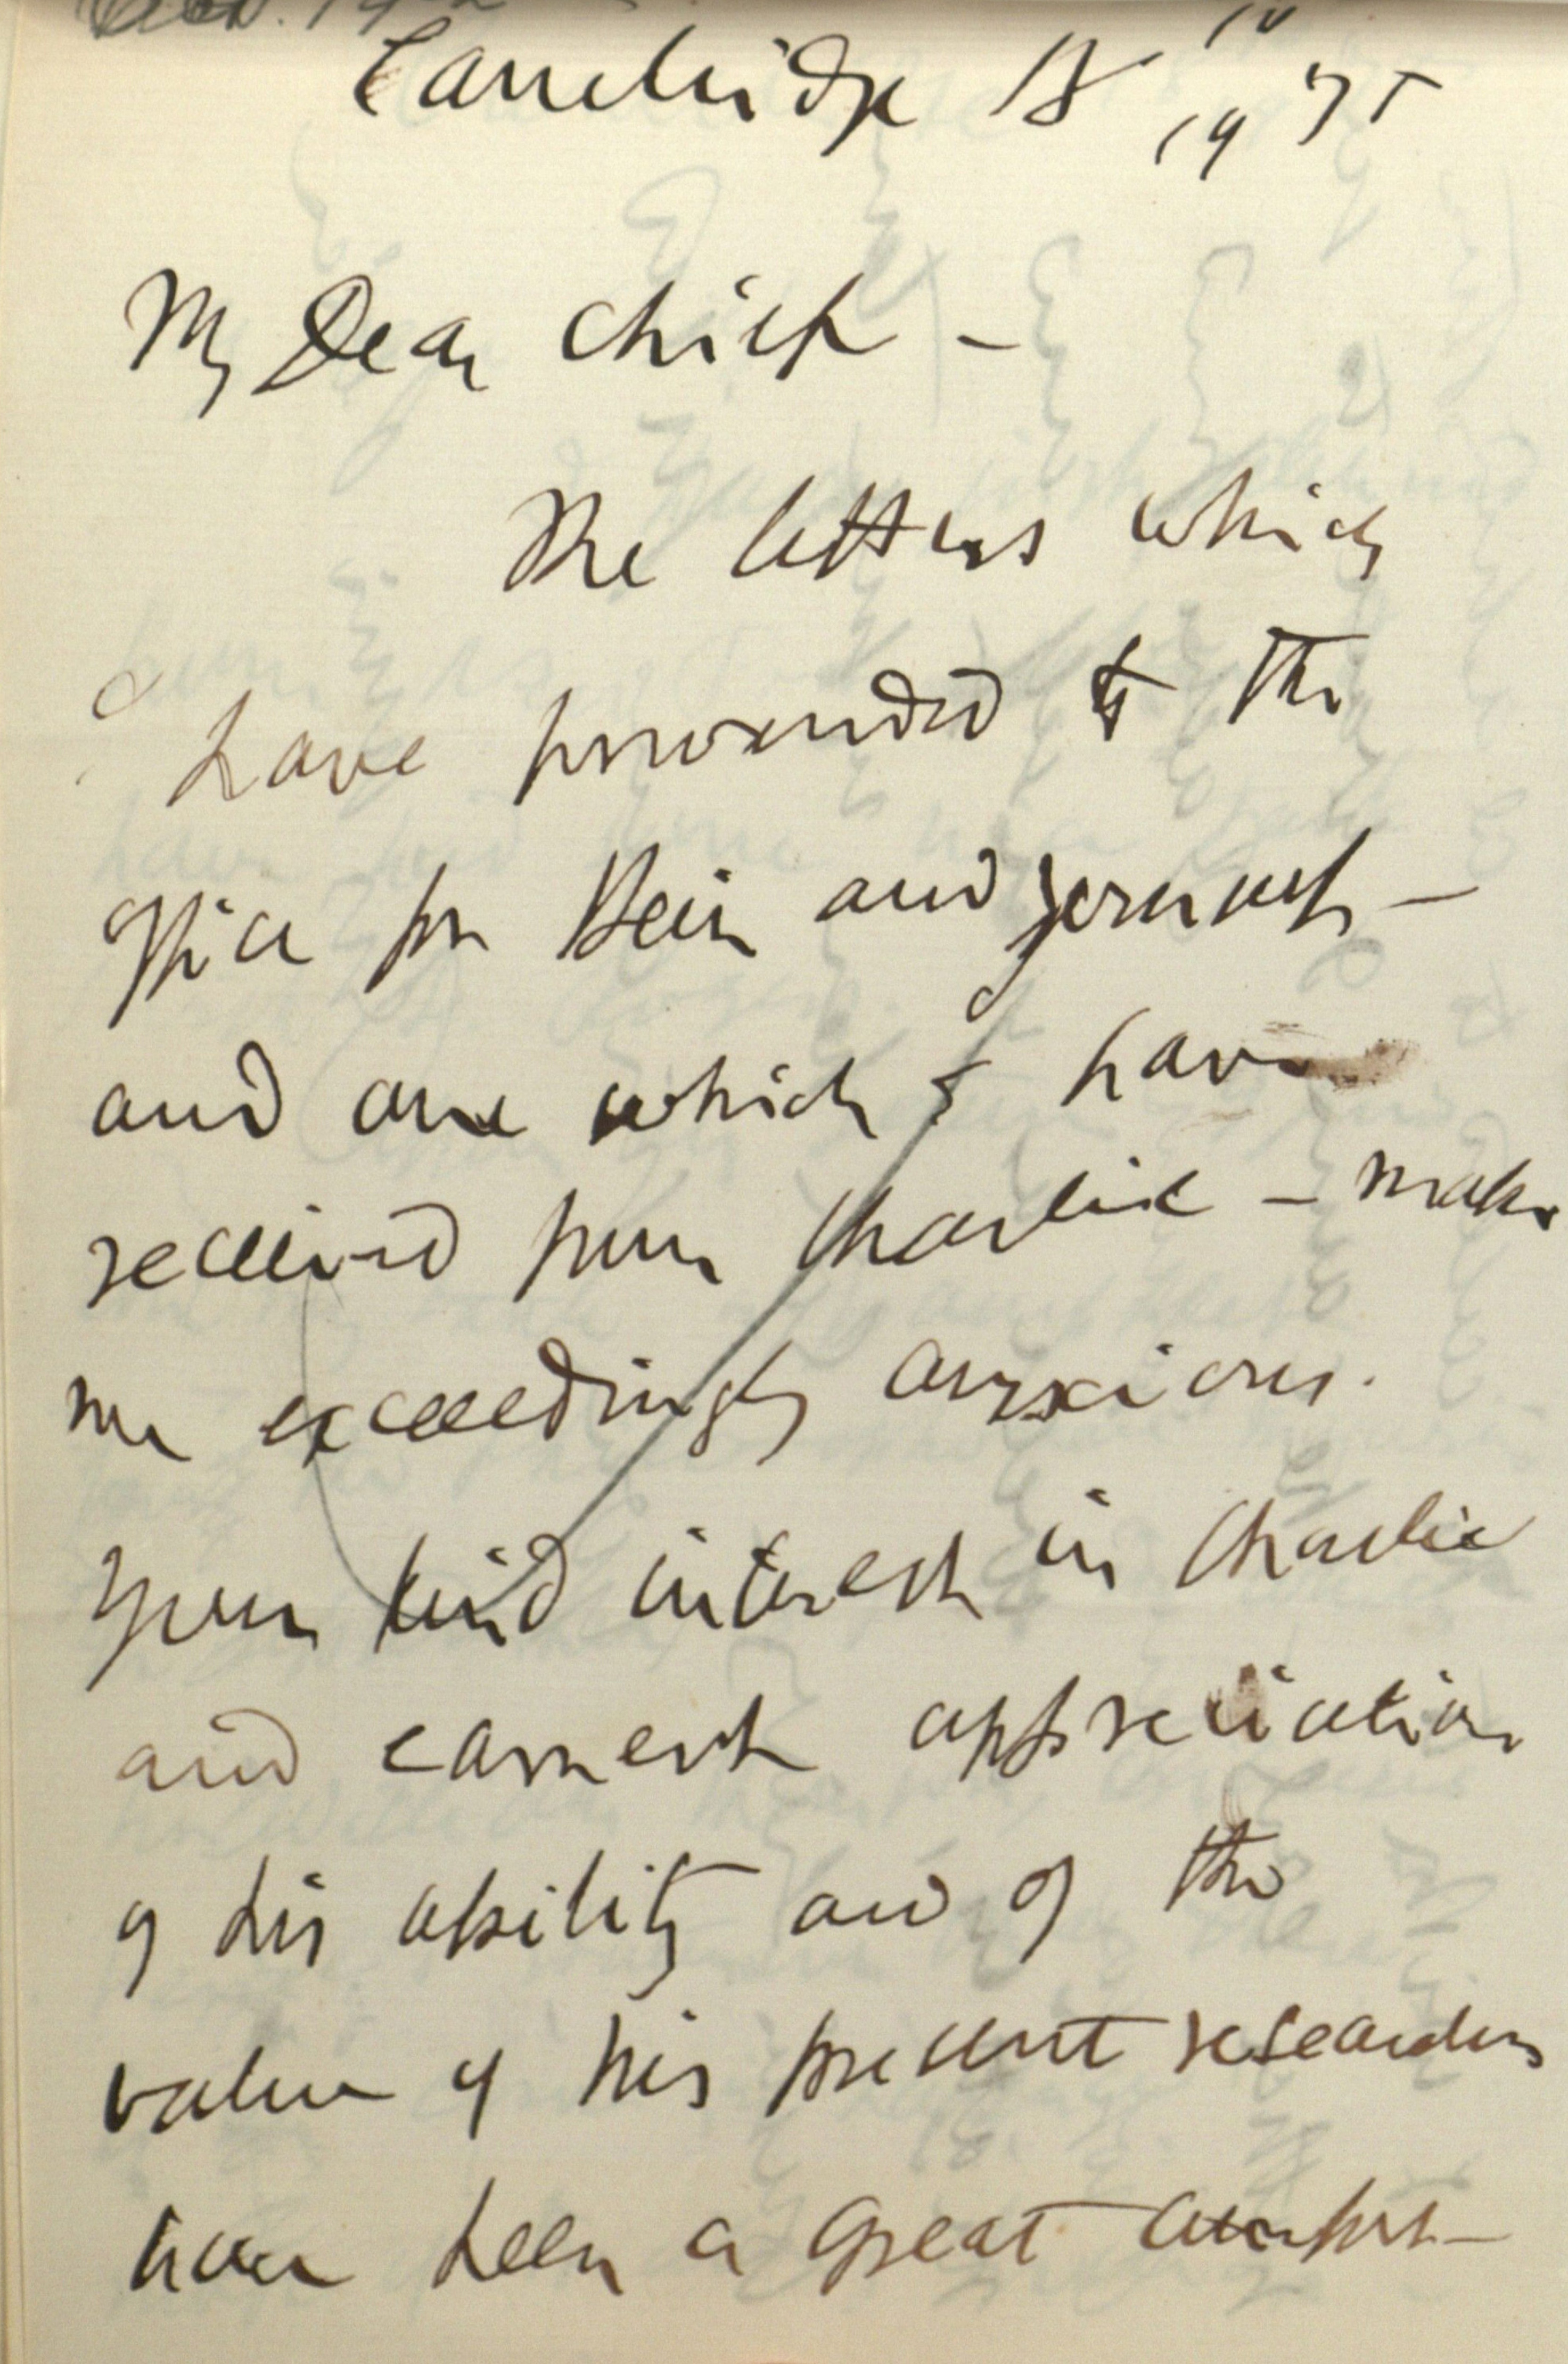 Cambridge 18 10/19 75
My Dear Chief –
The letters which
I have forwarded to the
office for and yourself –
and one which I have
received from Charlie – make
me exceedingly anxious.
Your kind interest in Charlie
and earnest appreciation
of his ability and of the
value of his present researches
have been a great comfort –